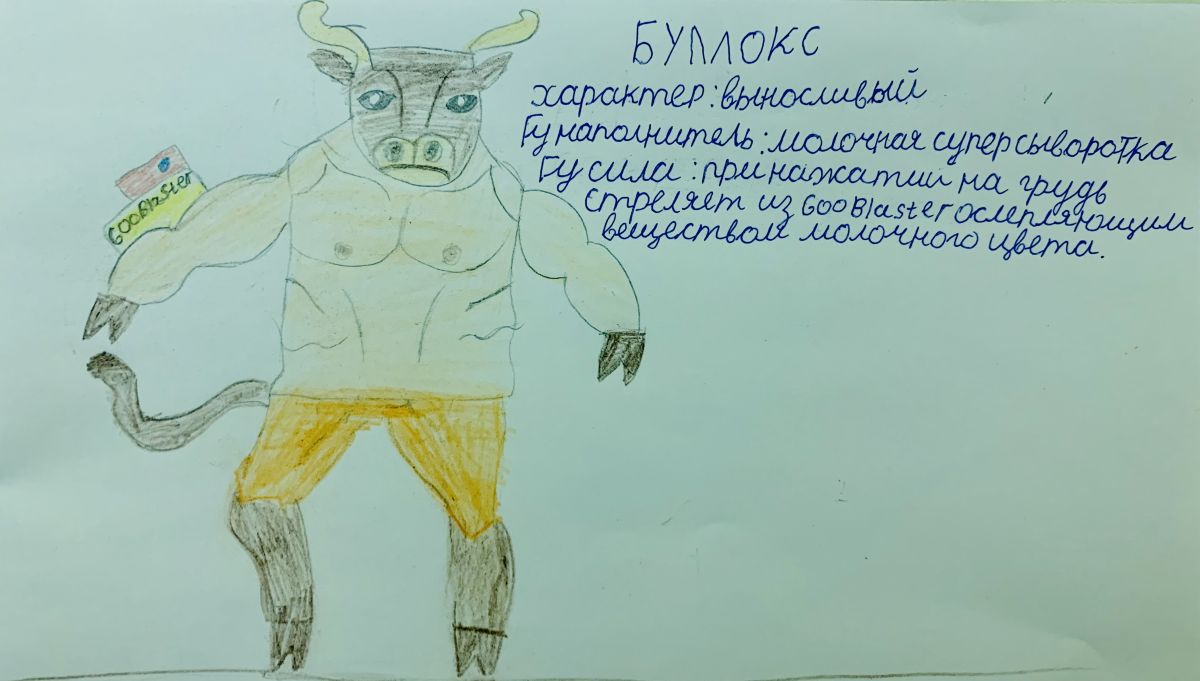 БУЛЛОКС
характер: выносливый
Гу наполнитель: молочная суперсыворотка
Гу сила: при нажатии на грудь
стреляет из GOOBlaster ослепляющим
веществом молочного цвета.
GOOBlaster